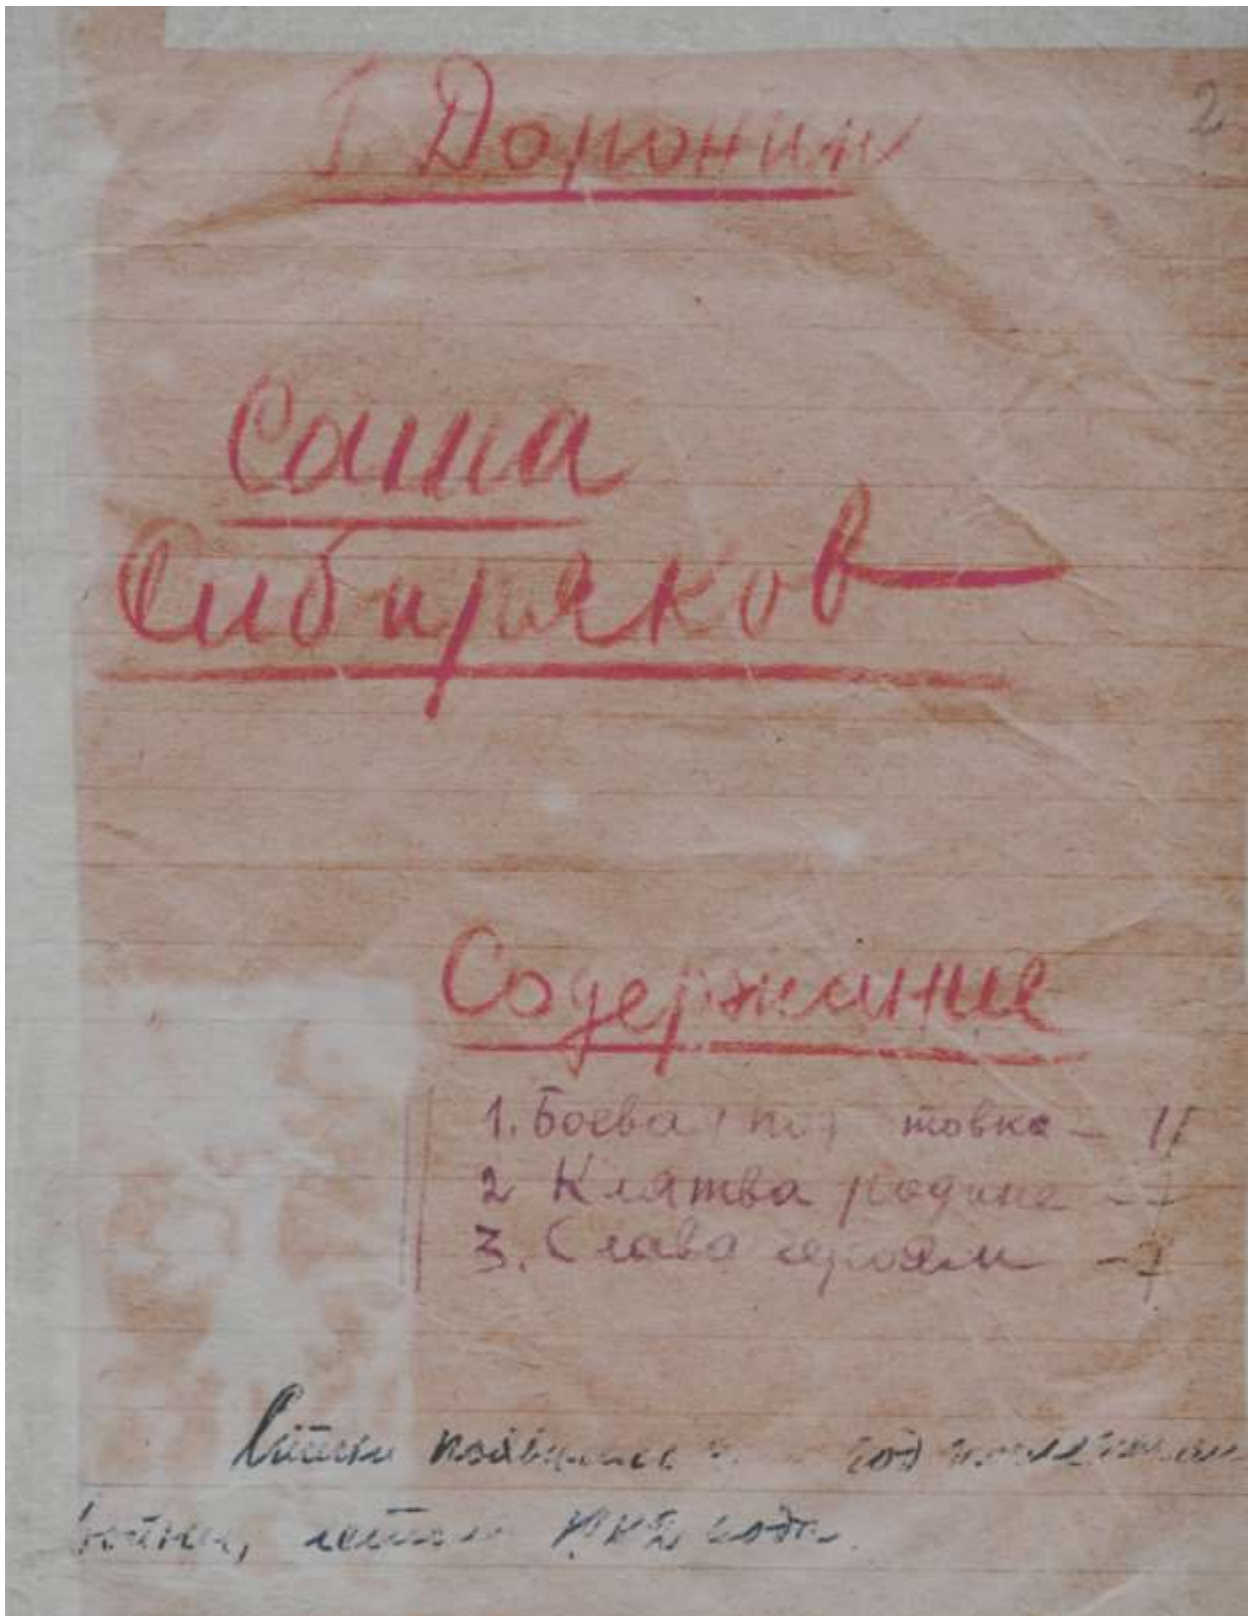 Г. Доронин
2
Саша
Сибиряков
Содержание
1. Боева товка - 11
2 Клятва родине - 7
3. Слава героям - 7
Стихи год
войны, летом 1942 года.